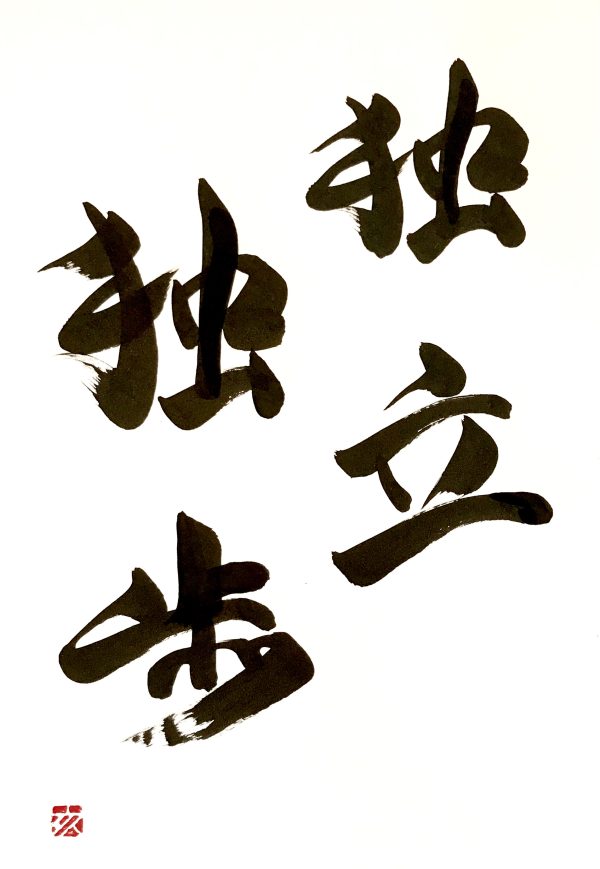 独立
独歩